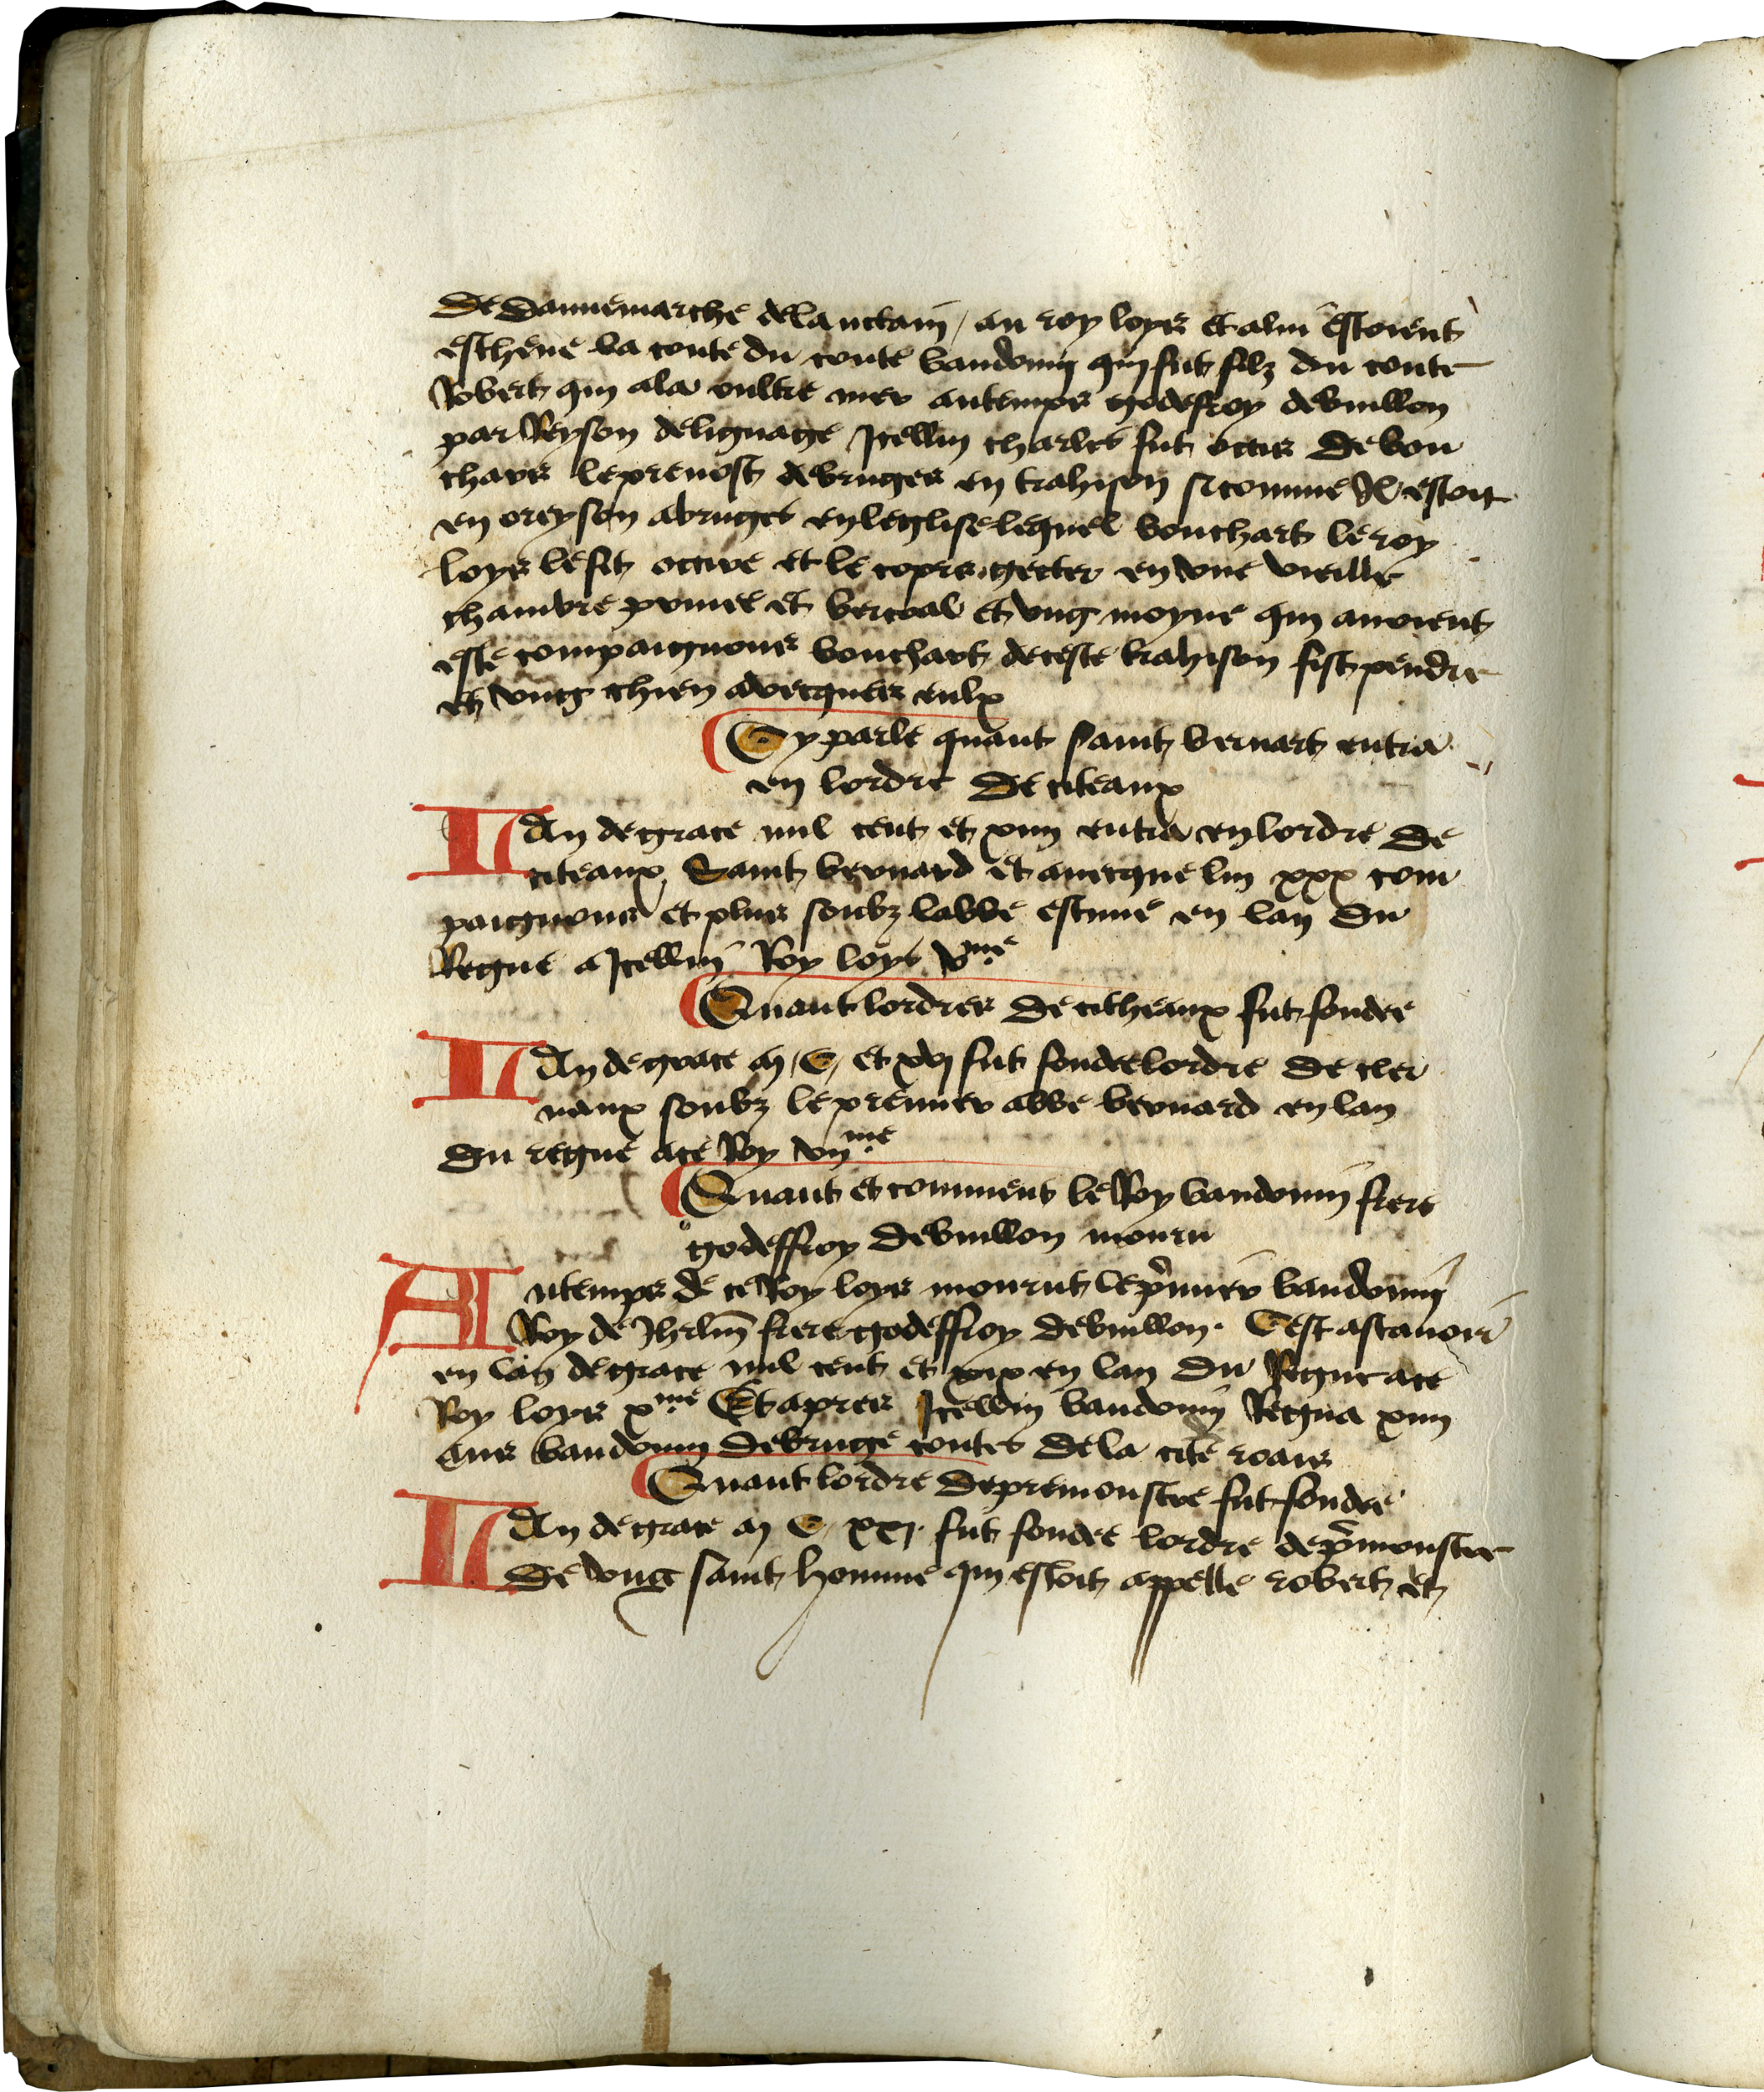 de dannemarche de la nctain / au roy loys et a lui estoient
escheue la conte du conte baudouin qui fut filz du conte
Robert qui ala oultre mer au temps godefroy de buillon
par Reyson de lignage Icellui charles fut occis de bou
chars le prevost de bruges en trahison si comme Il estoit
en oreyson a bruges en leglise lequel bouchart le roy
loys le fit occire et le corps getter en une vieille
chambre privee et bertoal et ung moyne qui avoient
este compaignons bouchart de ceste trahison fist pendre
et ung chien avecques eulx
Cy parle quant saint bernart entra
en lordre de citeaux
L An de grace mil cent et xiiii entra en lordre de
citeaux Saint bernard et avecque lui xxx com
paignons et plus soubz labbe estinne en lan du
Regne a Icellui Roy loys vme
Quant lordres de citheaux fut fondee
L An de grace m C et xvj fut fondee lordre de cler
vaux soubz le premier abbe bernard en lan
du regne a ce Roy vijme
Quant et comment le Roy baudouin frere
godeffroy de buillon mouru
Au temps de ce Roy loys mourut le pmier baudouin
Roy de Jhrlm frere godeffroy de buillon. Cest assavoir
en lan de grace mil cent et xix en lan du Regne a ce
Roy loys xme Et apres Icellui baudouin Regna xiiii
ans baudouin de bruge contes de la cite roais
Quant lordre de premonstre fut fondee
L An de grace m C xxj fut fondee lordre de pmonstre
de ung saint homme qui estoit appelle robert et